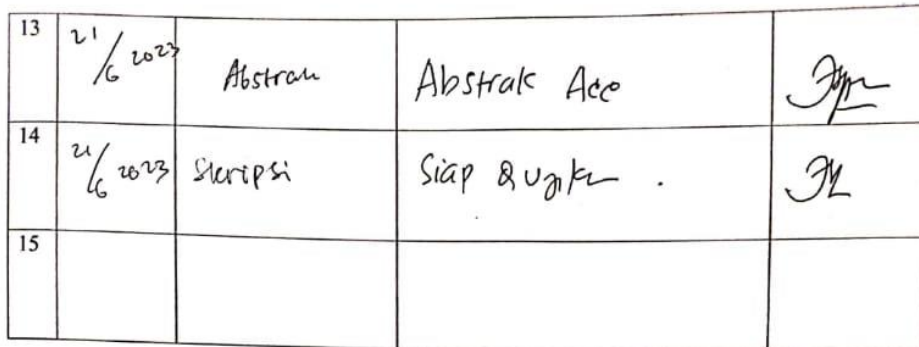 13 21/6 2023 Abstrak Abstrak Acc
14 21/6 2023 Skripsi Siap diujikan.
15